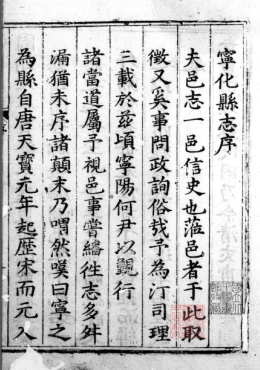 寧化縣志序
夫邑志一邑信史也蒞邑者于此取
徵又奚事問政詢俗哉予為汀司理
三載於茲頃寧陽何尹以覲行
諸當道屬予視邑事嘗繙徃志多舛
漏猶未序諸顛末乃喟然嘆曰寧之
為縣自唐天寶元年起歷宋而元入